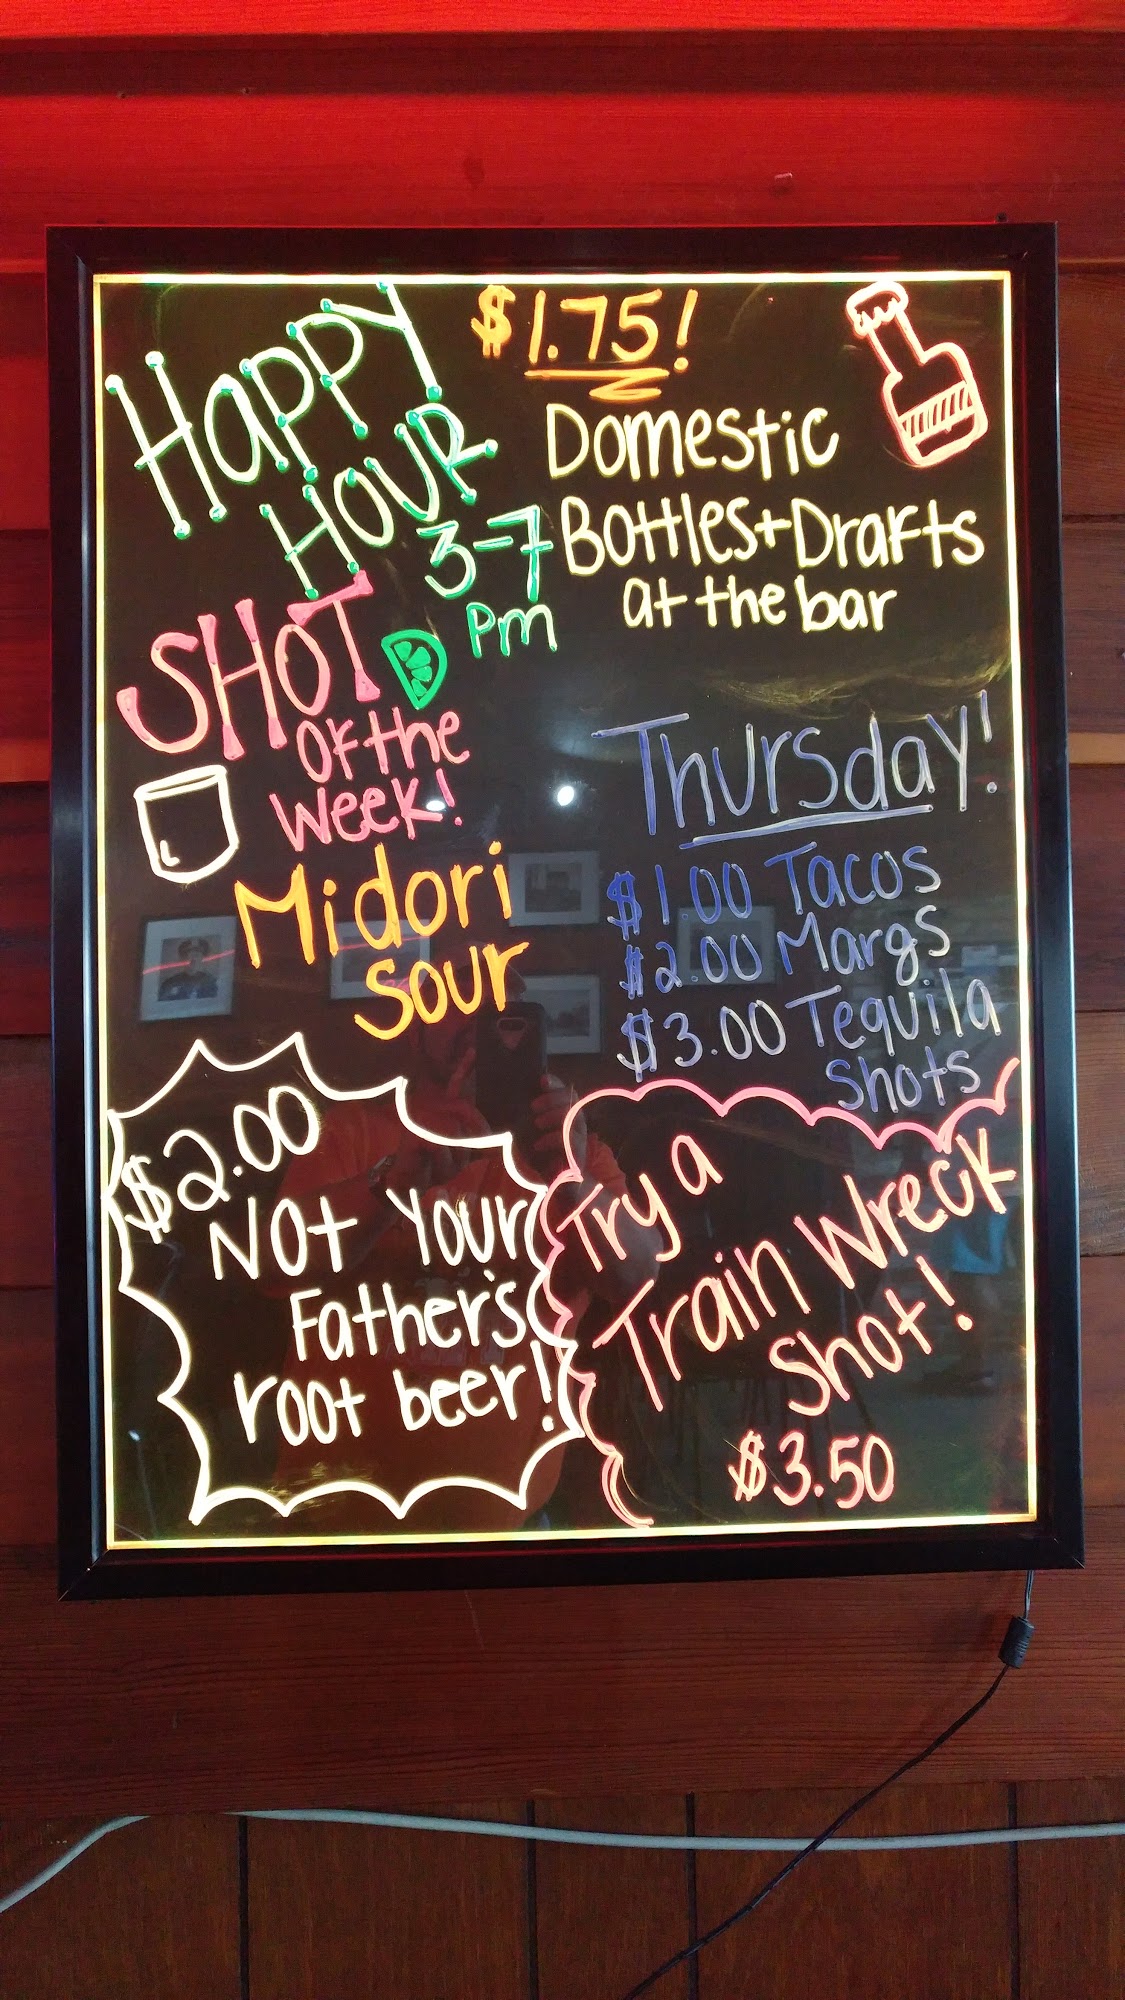 Happy
Hour
3-7
pm
$1.75!
Domestic
Bottles + Drafts
at the bar
SHOT
of the
week!
Midori
sour
Thursday!
$1.00 Tacos
$2.00 Margs
$3.00 Tequila
shots
$2.00
Not Your
Father's
root beer!
Try a
Train Wreck
Shot!
$3.50